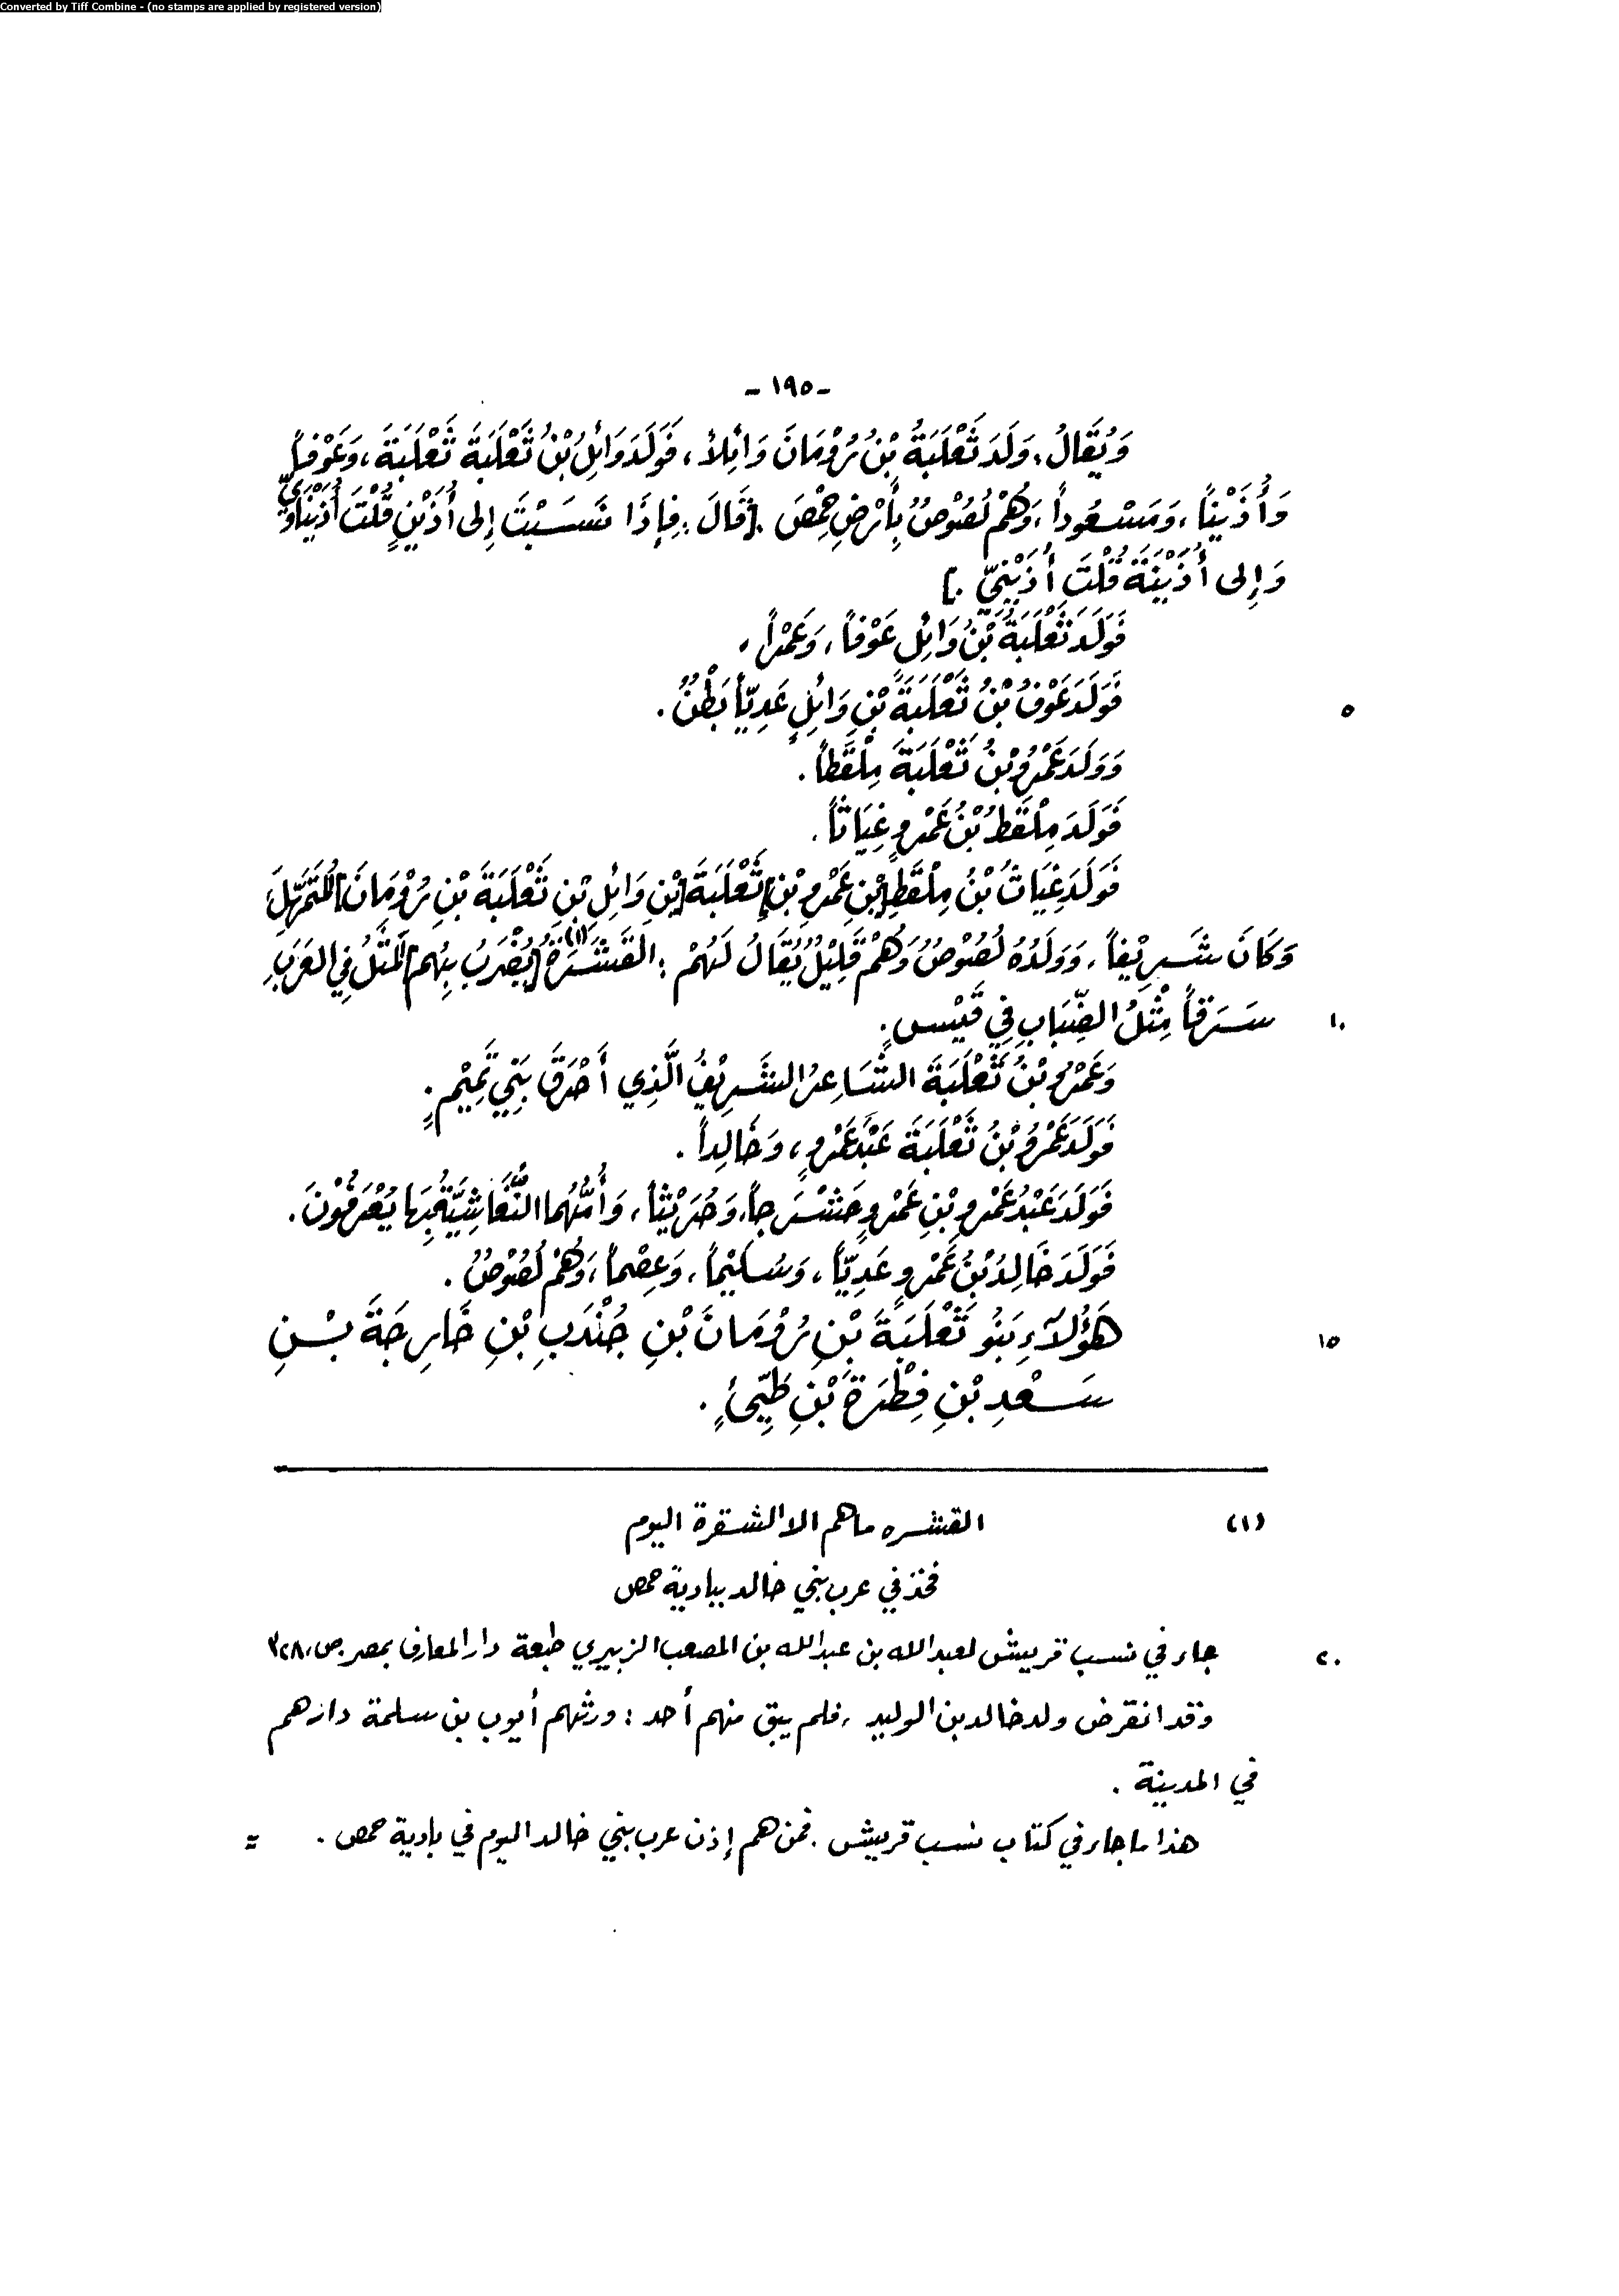 Converted by Tiff Combine - (no stamps are applied by registered version)
- ١٩٥ -
وَيُقَالُ: وَلَدَ ثَعْلَبَةُ بْنُ رُوْمَانَ وَائِلاً، فَوَلَدَ وَائِلُ بْنُ ثَعْلَبَةَ ثَعْلَبَةَ، وَعَوْفاً
وَأُذَيْناً، وَمَسْعُوداً، وَهُمْ لُصُوْصٌ بِأَرْضِ حِمْصَ [قَالَ: فَإِذَا نَسَبْتَ إِلى أُذَيْنٍ قُلْتَ أُذَيْنَاوِيٌّ
وَإِلى أُذَيْنَةَ قُلْتَ أُذَيْنِيّ.]
فَوَلَدَ ثَعْلَبَةُ بْنُ وَائِلٍ عَوْفاً، وَعَمْراً،
فَوَلَدَ عَوْفُ بْنُ ثَعْلَبَةَ بْنِ وَائِلٍ عَدِيّاً بَطْنٌ. ٥
وَوَلَدَ عَمْرُو بْنُ ثَعْلَبَةَ مِلْقَطاً.
فَوَلَدَ مِلْقَطُ بْنُ عَمْرٍو غِيَاثاً.
فَوَلَدَ غِيَاثُ بْنُ مِلْقَطِ [بْنِ عَمْرِو بْنِ] ثَعْلَبَةَ [بْنِ وَائِلِ بْنِ ثَعْلَبَةَ بْنِ رُوْمَانَ] المُتَمَهِّلَ
وَكَانَ شَرِيْفاً، وَوَلَدُهُ لُصُوْصٌ وَهُمْ قَلِيْلٌ يُقَالُ لَهُمْ: القَشَرَةُ (١) [يُضْرَبُ بِهُم] المَثَلُ فِي العَرَبِ
سَرَقاً مِثْلُ الضِّبَابِ فِي قَيْسٍ. ١٠
وَعَمْرُو بْنُ ثَعْلَبَةَ الشَّاعِرُ الشَّرِيْفُ الَّذِي أَحْرَقَ بَنِي تَمِيْمٍ.
فَوَلَدَ عَمْرُو بْنُ ثَعْلَبَةَ عَبْدَ عَمْرٍو، وَخَالِداً.
فَوَلَدَ عَبْدُ عَمْرِو بْنِ عَمْرٍو حَشْرَجاً، وَحُرَيْثاً، وَأُمُّهُما النُّغَاشِيَّةُ بِهَا يُعْرَفُوْنَ.
فَوَلَدَ خَالِدُ بْنُ عَمْرٍو عَدِيّاً، وَسُلَيْماً، وَعِصْماً، وَهُمْ لُصُوْصٌ.
هَؤُلاَءِ بَنُو ثَعْلَبَةَ بْنِ رُوْمَانَ بْنِ جُنْدَبِ بْنِ خَارِجَةَ بْنِ ١٥
سَعْدِ بْنِ فِطْرَةَ بْنِ طَيِّئٍ.
(١) القشره ماهم الا الشقرة اليوم
فخذ في عرب بني خالد ببادية حمص
جاء في نسب قريش لعبدالله بن عبدالله بن المصعب الزبيري طبعة دار المعارف بمصر ص، ٣٢٨ ٢٠
وقد انقرض ولد خالد بن الوليد، فلم يبق منهم أحد: ورثهم أيوب بن سلمة دارهم
في المدينة.
هذا ما جاء في كتاب نسب قريش. فمن هم إذن عرب بني خالد اليوم في بادية حمص. =